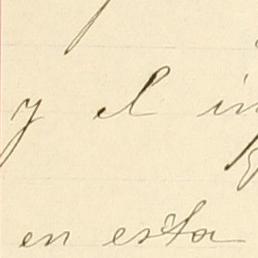 y el
en esta